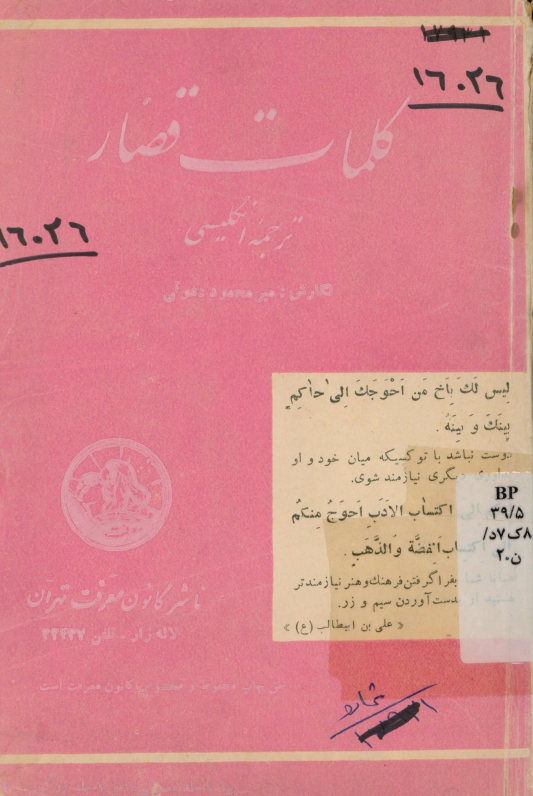 ۱۷۹۳۱
۱۶۰۲۶
کلمات قصار
ترجمهٔ انگلیسی
۱۶۰۲۶
نگارش : میر محمود دعوتی
لَیس لَكَ بِأَخٍ مَن اَحْوَجَكَ اِلی حاٰكِمٍ
بَینَكَ وَ بَینَهُ .
دوست نباشد با تو کسیکه میان خود و او
دیگری نیازمند شوی.
اِلی اکتِسٰابِ الاَدَبِ اَحوَجُ مِنكُم
اکتِسٰابِ الفِضَّة وَالذَّهَبِ .
بفراگرفتن فرهنگ وهنر نیازمندتر
بدست‌آوردن سیم و زر.
« علی بن ابیطالب (ع) »
BP
۳۹/۵
/۸ک۷د
۲۰ن
ناشر کانون معرفت تهران
لاله زار - تلفن ۳۲۴۳۷
حق چاپ محفوظ و مخصوص کانون معرفت است
شماره